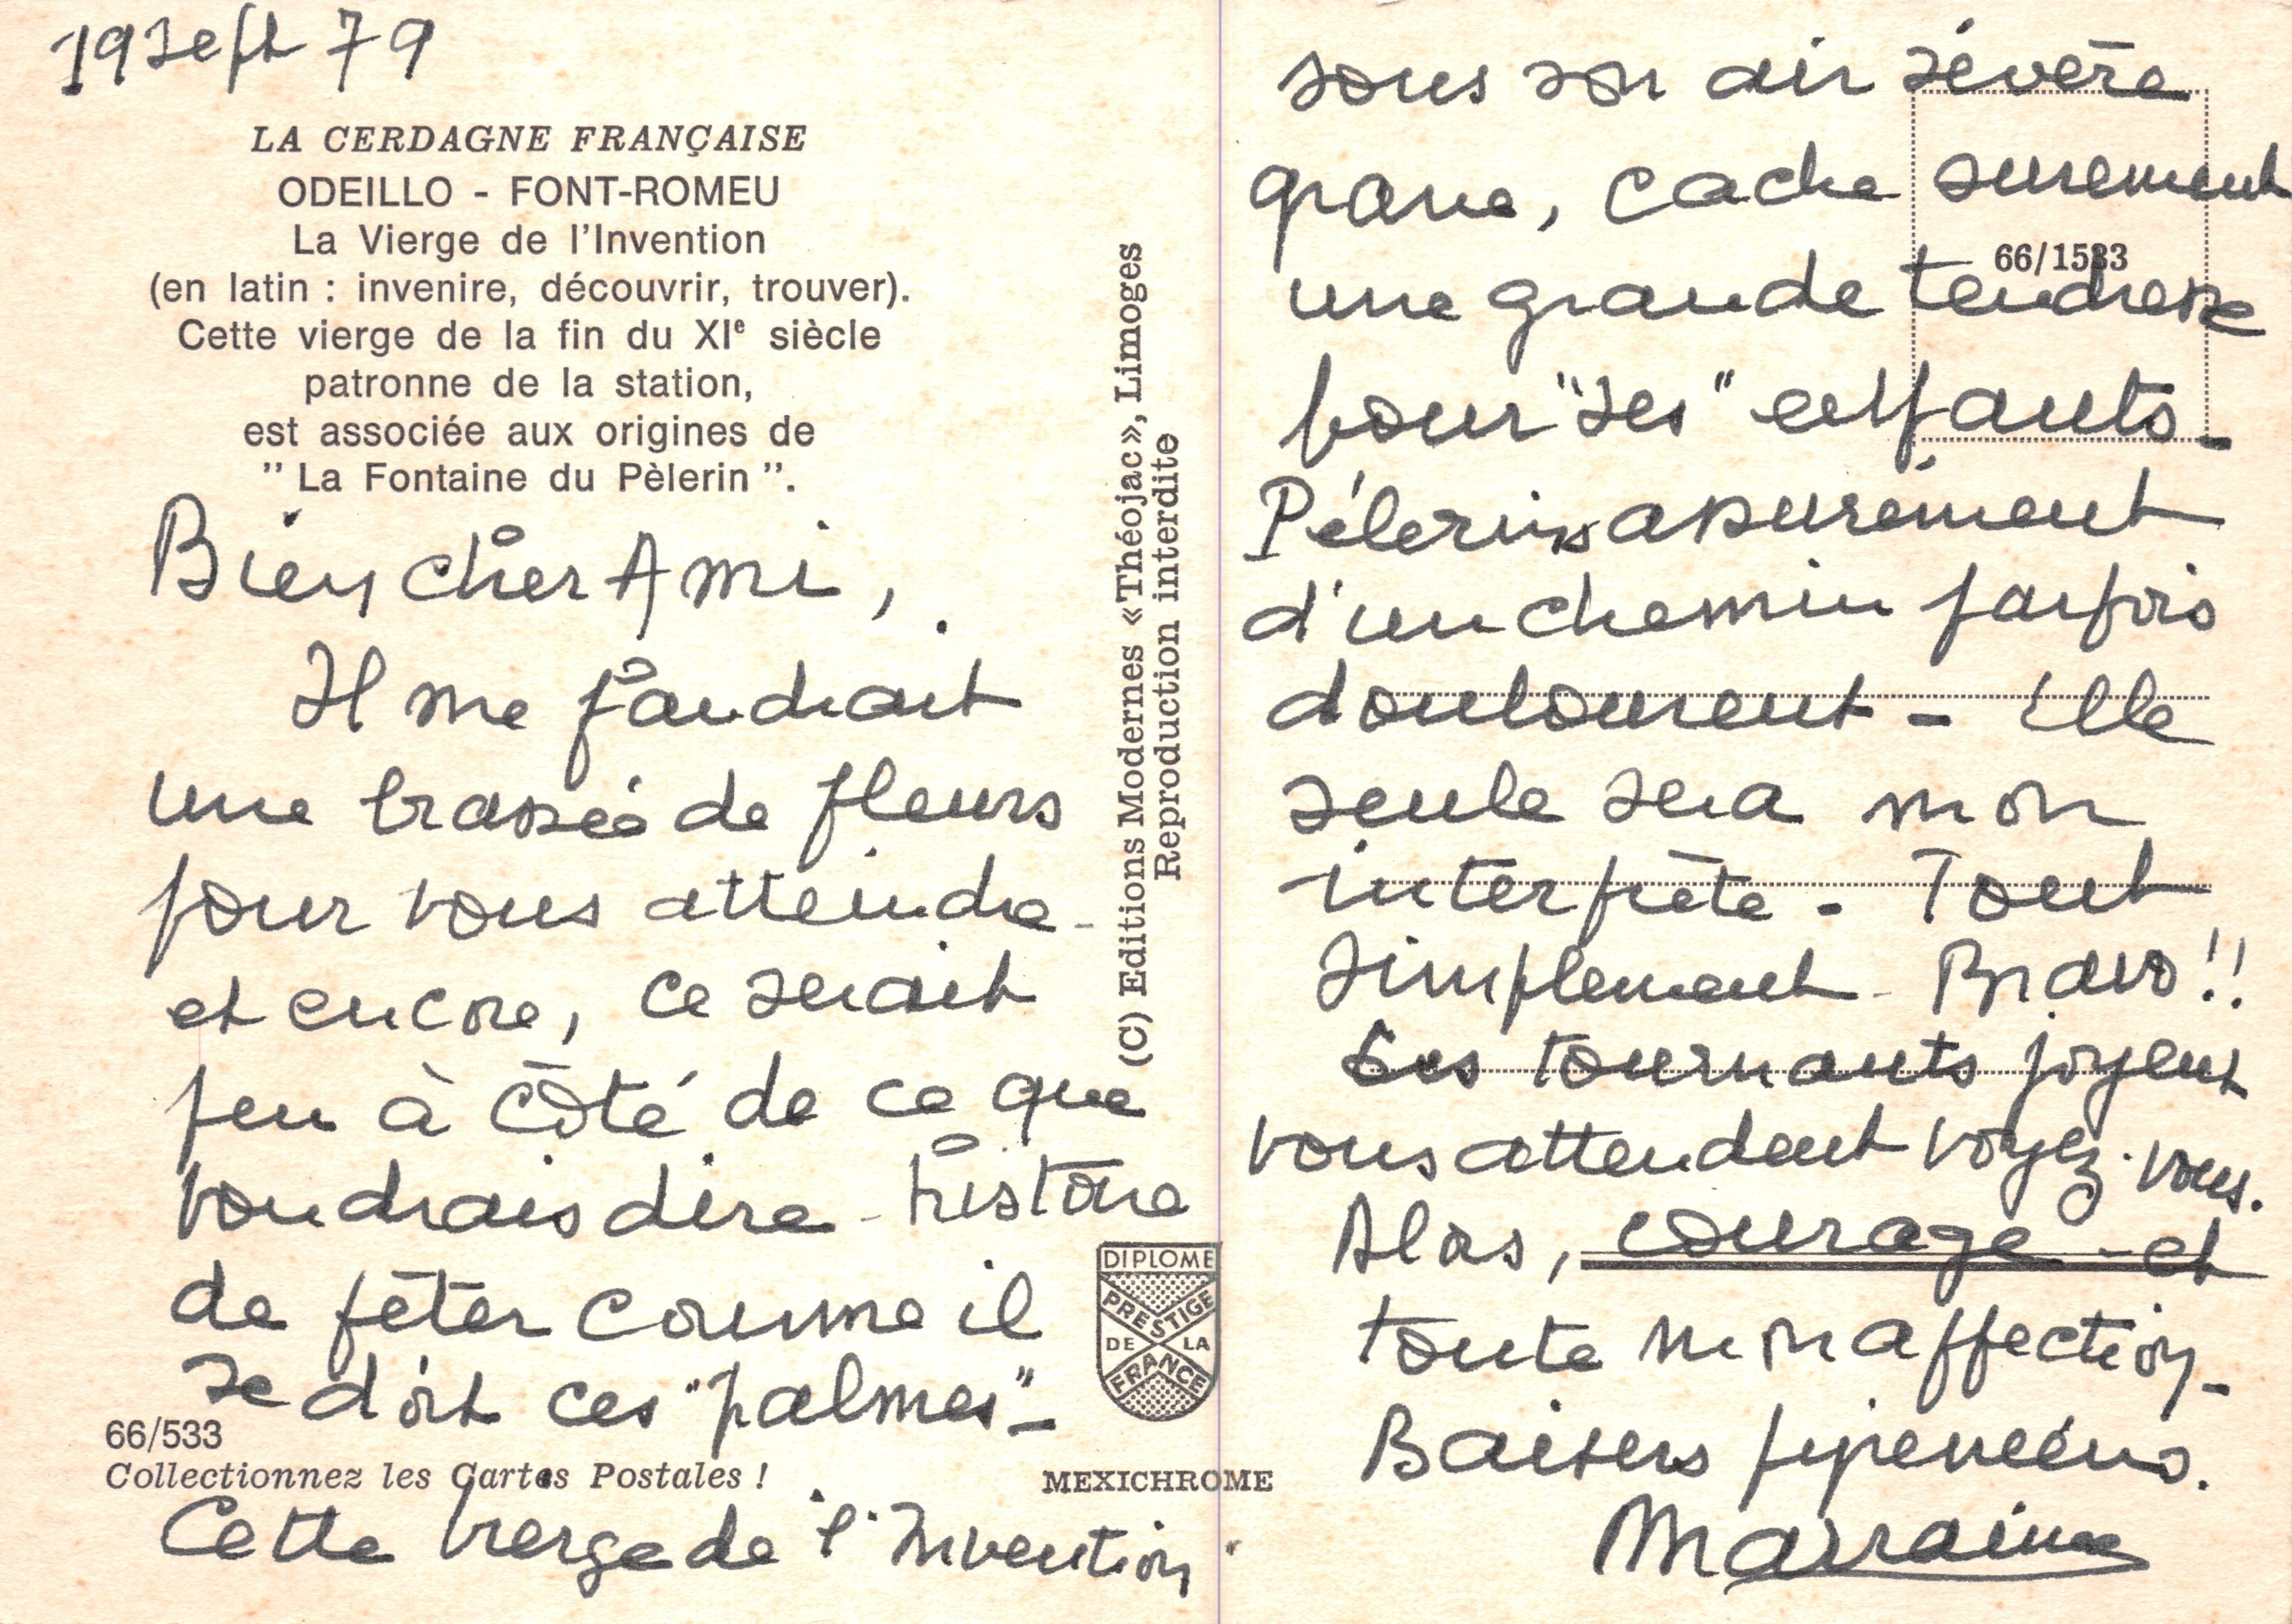 19 sept 79
LA CERDAGNE FRANÇAISE
ODEILLO - FONT-ROMEU
La Vierge de l'Invention
(en latin : invenire, découvrir, trouver).
Cette vierge de la fin du XIe siècle
patronne de la station,
est associée aux origines de
" La Fontaine du Pèlerin ".
Bien cher Ami,
Il me faudrait
une brassée de fleurs
pour vous atteindre -
et encore, ce serait
peu à côté de ce que
voudrais dire - histoire
de fêter comme il
se doit ces "palmes" -
66/533
Collectionnez les Cartes Postales !
MEXICHROME
Cette vierge de l'Invention
(C) Editions Modernes «Théojac», Limoges
Reproduction interdite
DIPLOME
PRESTIGE
DE LA
FRANCE
sous son air sévère
grave, cache surement
66/1533
une grande tendresse
pour "ses" enfants -
Pélerins assurément
d'un chemin parfois
- Elle
seule sera mon
interprète - Tout
simplement - Bravo !!
tournants
vous attendent voyez-vous.
Alors, courage - et
toute mon affection -
Baisers pyrenéens.
Marraine